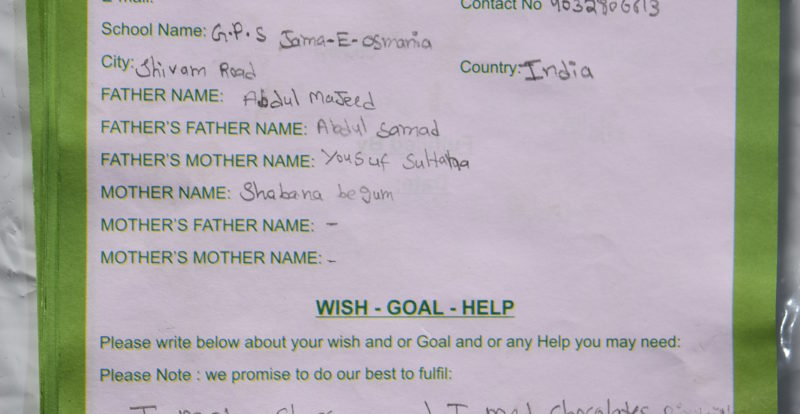 Contact No 9032806613
School Name: G.P.S Jama-E-osmania
City: Shivam Road Country: India
FATHER NAME: Abdul Majeed
FATHER'S FATHER NAME: Abdul Samad
FATHER'S MOTHER NAME: Yousuf Sultana
MOTHER NAME: Shabana begum
MOTHER'S FATHER NAME: -
MOTHER'S MOTHER NAME: -
WISH - GOAL - HELP
Please write below about your wish and or Goal and or any Help you may need:
Please Note : we promise to do our best to fulfil: